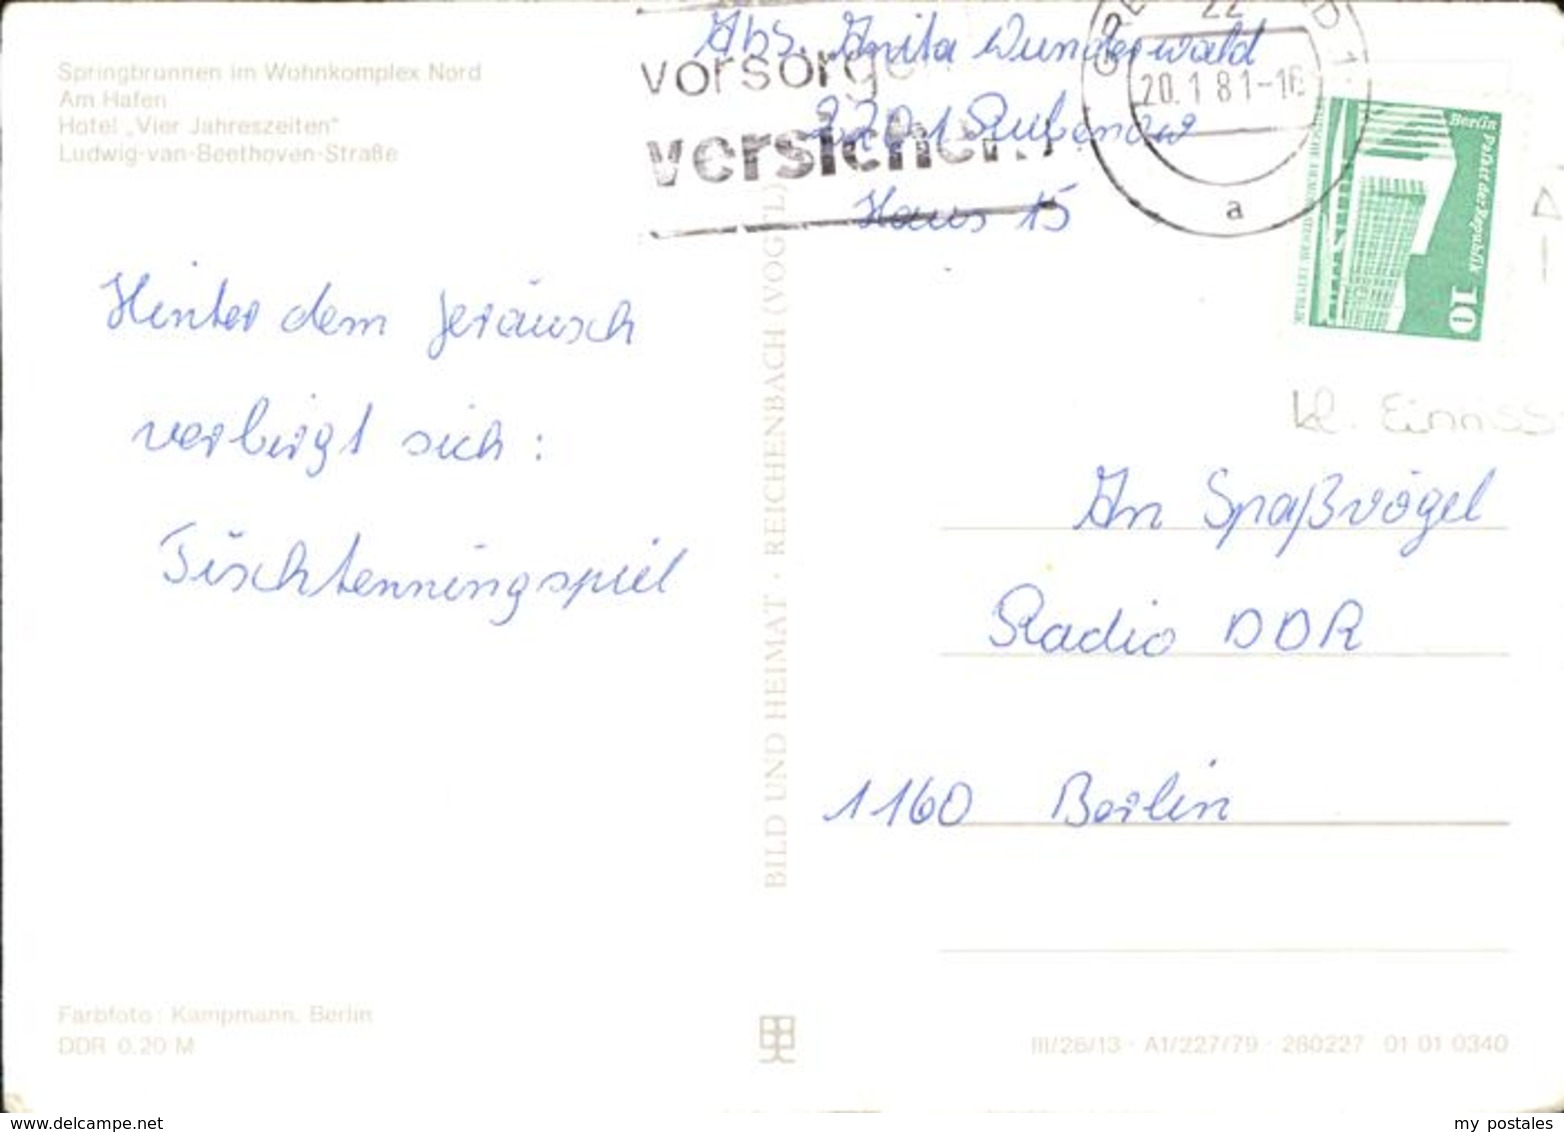 Springbrunnen im Wohnkomplex Nord
Am Hafen
Hotel „Vier Jahreszeiten“
Ludwig-van-Beethoven-Straße
Abs. Anita Wunderwald
2201 Rubenow
Haus 15
vorsorge
versichern
22
20.1.81-16
a
Berlin
Palast der Republik
10
kl. Einriss
Hinter dem Jeräusch
verbirgt sich:
Tischtenningspiel
An Spaßvögel
Radio DDR
1160 Berlin
BILD UND HEIMAT · REICHENBACH (VOGTL)
Farbfoto: Kampmann, Berlin
DDR 0,20 M
III/26/13 · A1/227/79 · 280227 01 01 0340
delcampe.net
my_postales